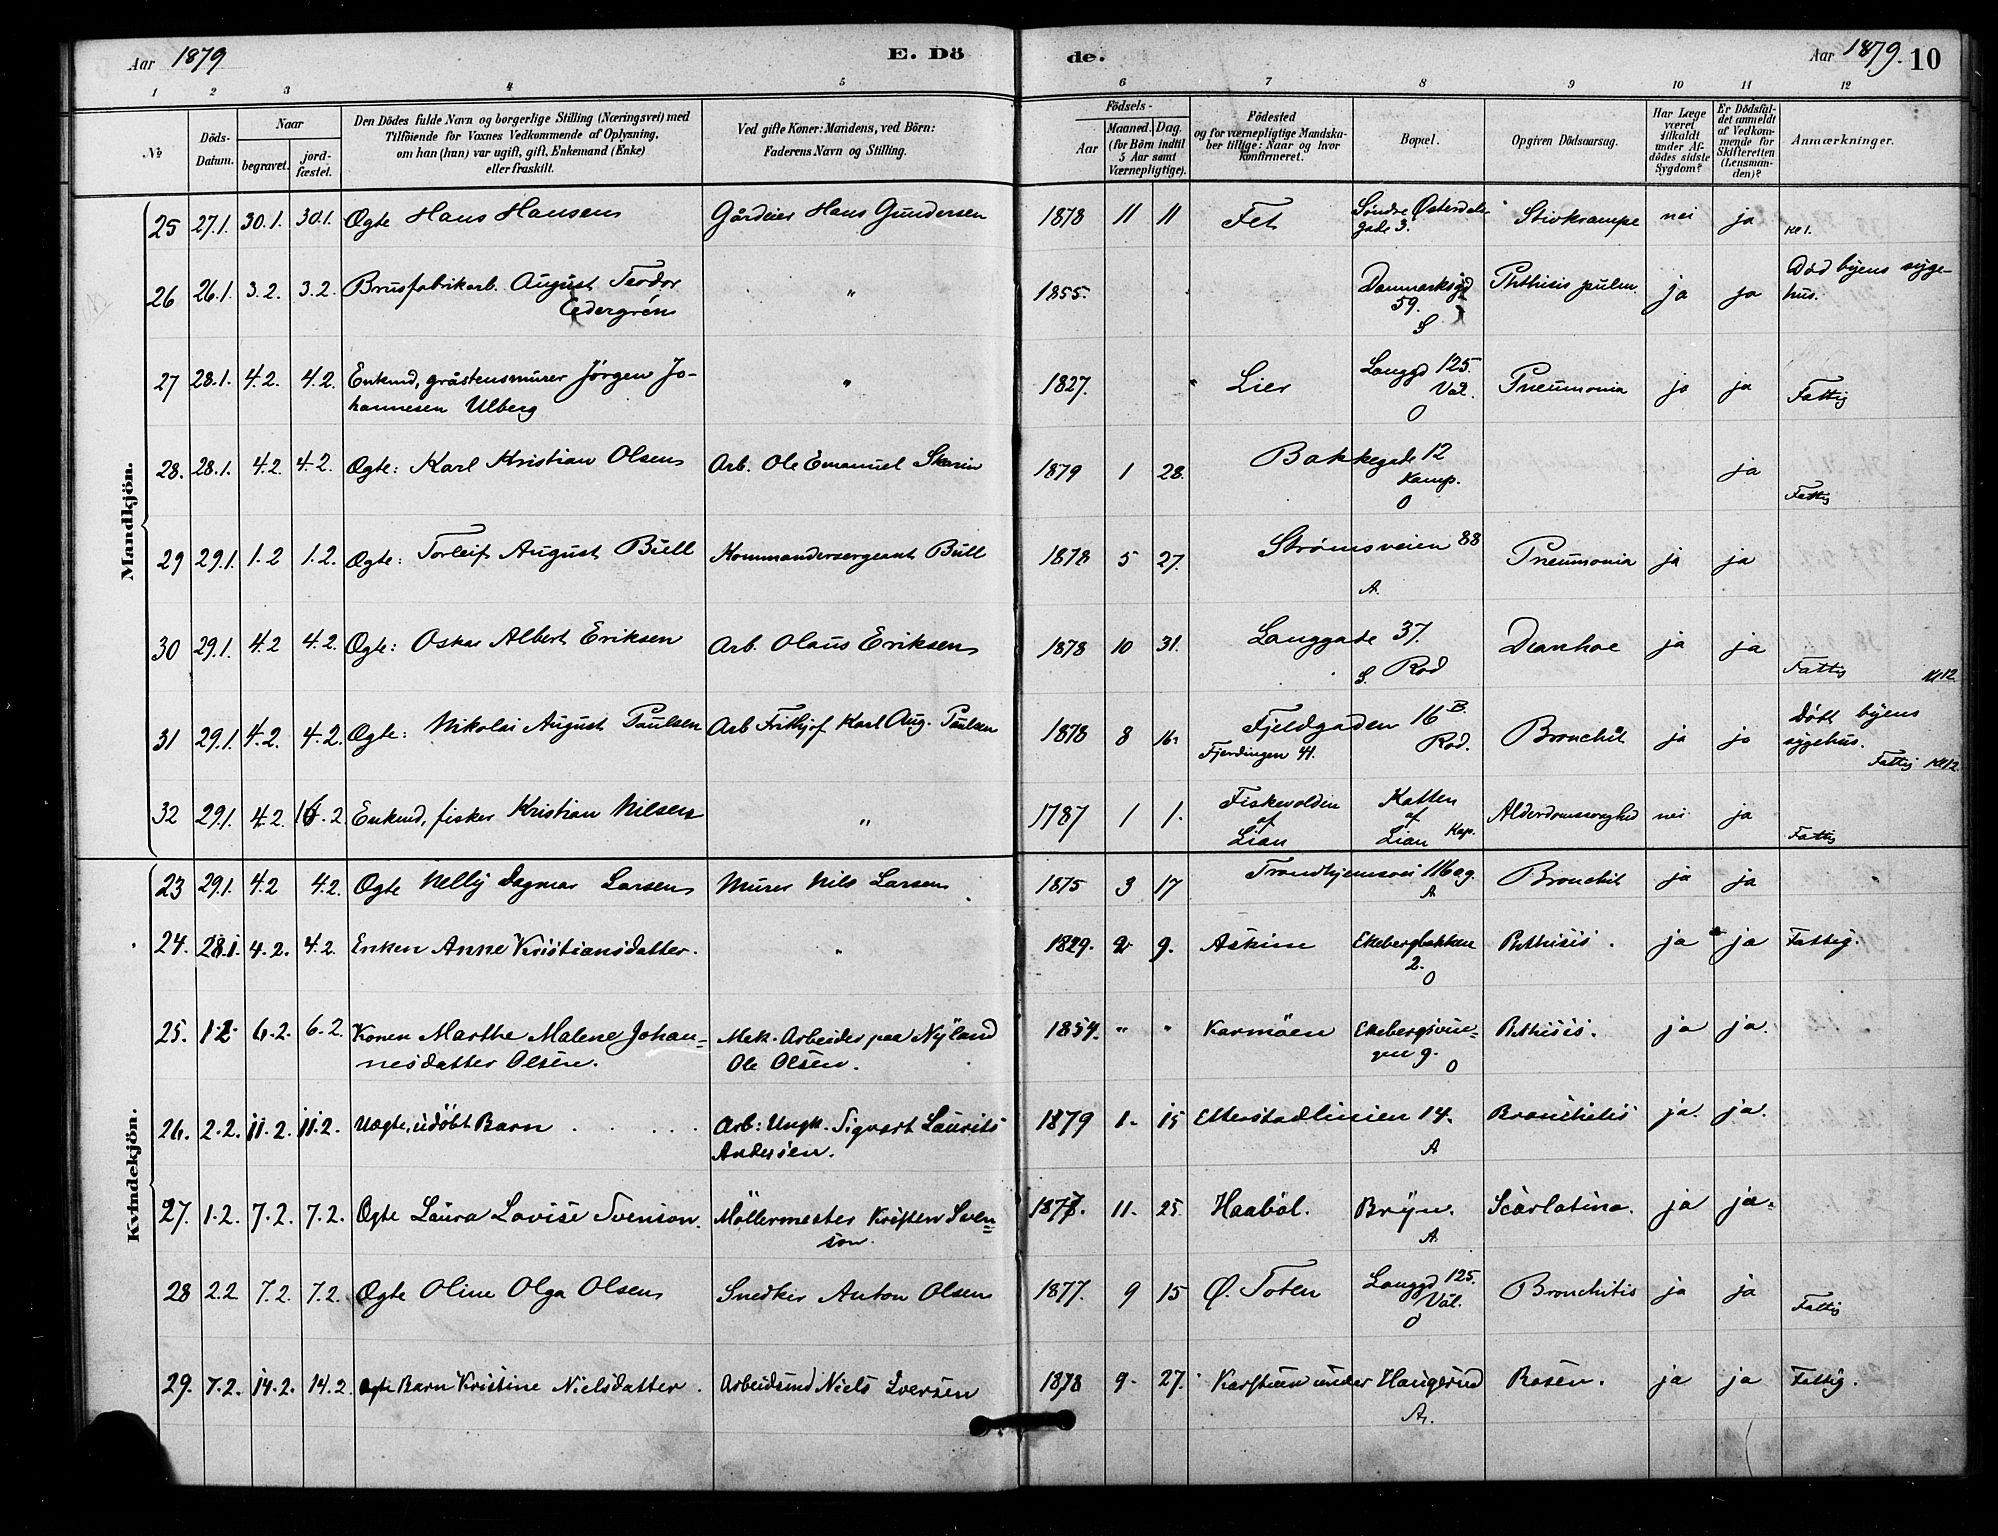 Aar 1879 E. Dö de. Aar 1879. 10
1 2 3 4 5 6 7 8 9 10 11 12
№ Döds-Datum. Naar begravet. jord-fæstet. Den Dödes fulde Navn og borgerlige Stilling (Næringsvei) med Tilföiende for Voxnes Vedkommende af Oplysning, om han (hun) var ugift, gift, Enkemand (Enke) eller fraskilt. Ved gifte Koner: Mandens, ved Börn: Faderens Navn og Stilling. Födsels- Aar Maaned. Dag. (for Börn indtil 5 Aar samt Værnepligtige). Födested og for værnepligtige Mandska-ber tillige: Naar og hvor konfirmeret. Bopæl. Opgiven Dödsaarsag. Har Læge været tilkaldt under Af-dödes sidste Sygdom? Er Dödsfal-det anmeldt af Vedkom-mende for Skifteretten (Lensman-den)? Anmærkninger.
Mandkjön.
25 27.1. 30.1. 30.1. Ægte Hans Hansen Gårdeier Hans Gundersen 1878 11 11 Fet Søndre Østerdals gade 3. Stivkrampe nei ja Kl 1.
26 26.1. 3.2. 3.2. Brusfabrikarb. August Teodor
Cedergrén " 1855. Danmarksgd 59. S Phthisis pulm. ja ja Död byens syge-
hus.
27 28.1. 4.2. 4.2. Enkmd, gråstensmurer Jørgen Jo-
hannesen Ulberg " 1827. " Lier Langgd 125. Vål. O Pneumonia ja ja Fattig
28. 28.1. 4.2. 4.2. Ægte: Karl Kristian Olsen Arb. Ole Emanuel Skarin 1879 1 28. Bakkegade 12 Kamp. O ja Fattig
29 29.1. 1.2 1.2. Ægte: Torleif August Bull Kommandersergeant Bull 1878 5 27. Strømsveien 88 A. Pneumonia ja ja
30 29.1. 4.2 4.2. Ægte: Oskar Albert Eriksen Arb. Olaus Eriksen 1878 10 31. Langgade 37. S. Rod Diarrhoe ja ja Fattig Kl 12.
31 29.1. 4.2. 4.2. Ægte: Nikolai August Paulsen Arb Frithjof Karl Aug. Paulsen 1878 8 16. Fjeldgaden 16 B. Rod.
Fjerdingen 41. Bronchit ja ja Dött byens
sygehus. Fattig Kl 12.
32 29.1. 4.2. 2 Enkmd, fisker Kristian Nilsen " 1787 1 1. Fiskevolden af Lian Katten af Lian Kap. Alderdomssvaghed nei ja Fattig
Kvindekjön.
23 29.1. 4.2 4.2. Ægte Nelly Dagmar Larsen Murer Nils Larsen 1875 3 17 Trondhjemsvei 116 A Bronchit ja ja
24. 28.1. 4.2. 4.2. Enken Anne Kristiansdatter. " 1829. 2 9. Askim Ekebergbakken 2. O Phthisis. ja ja Fattig.
25. 1.2. 6.2. 6.2 Konen Marthe Malene Johan-
nesdatter Olsen. Mek. Arbeider paa Nyland
Ole Olsen. 1854. " " Karmöen Ekebergsvin-
gen 9. O Phthisis. ja ja.
26. 2.2. 11.2. 11.2. Uægte, udöbt Barn Arb: Ungk. Sigvart Laurits
Andersen. 1879 1. 15 Etterstadlinien 14. A Bronchitis ja. ja.
27. 1.2. 7.2. 7.2. Ægte Laura Lovise Svenson. Möllermester Kristen Sven-
son. 1877. 11. 25. Haaböl. Bryn. A. Scarlatina. ja ja.
28 2.2 7.2. 7.2. Ægte Oline Olga Olsen Snedker Anton Olsen 1877. 9 15 Ø. Toten Langgd 125. Vål. O Bronchitis ja ja Fattig
29. 7.2. 14.2. 14.2 Ægte Barn Kristine Nielsdatter. Arbeidsmd Niels Iversen 1878 9. 27. under Haugerud A. Rosen. ja ja Fattig.